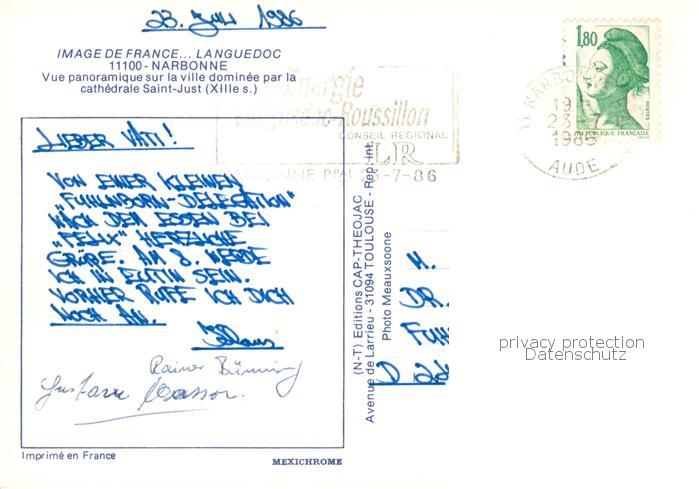 23. Juli 1986
IMAGE DE FRANCE... LANGUEDOC
11100 - NARBONNE
Vue panoramique sur la ville dominée par la
cathédrale Saint-Just (XIIIe s.)
Energie
Languedoc-Roussillon
CONSEIL REGIONAL
LR
NARBONNE PPAL 23-7-86
1,80
POSTES
REPUBLIQUE FRANÇAISE
11 NARBO
19 H
23-7
1986
AUDE
LIEBER VATI!
VON EINER KLEINEN
"FUHLNBORN-DELEGATION"
NACH DEM ESSEN BEI
"FELIX" HERZLICHE
GRÜßE. AM 8. WERDE
ICH IN EUTIN SEIN.
VORHER RUFE ICH DICH
NOCH AN.
Klaus
Rainer Bünning
Gustave Masson.
(N-T) Editions CAP-THEOJAC
Avenue de Larrieu - 31094 TOULOUSE - Rép. Int.
Photo Meauxsoone
H.
DR.
FUH
D 24
privacy protection
Datenschutz
Imprimé en France
MEXICHROME